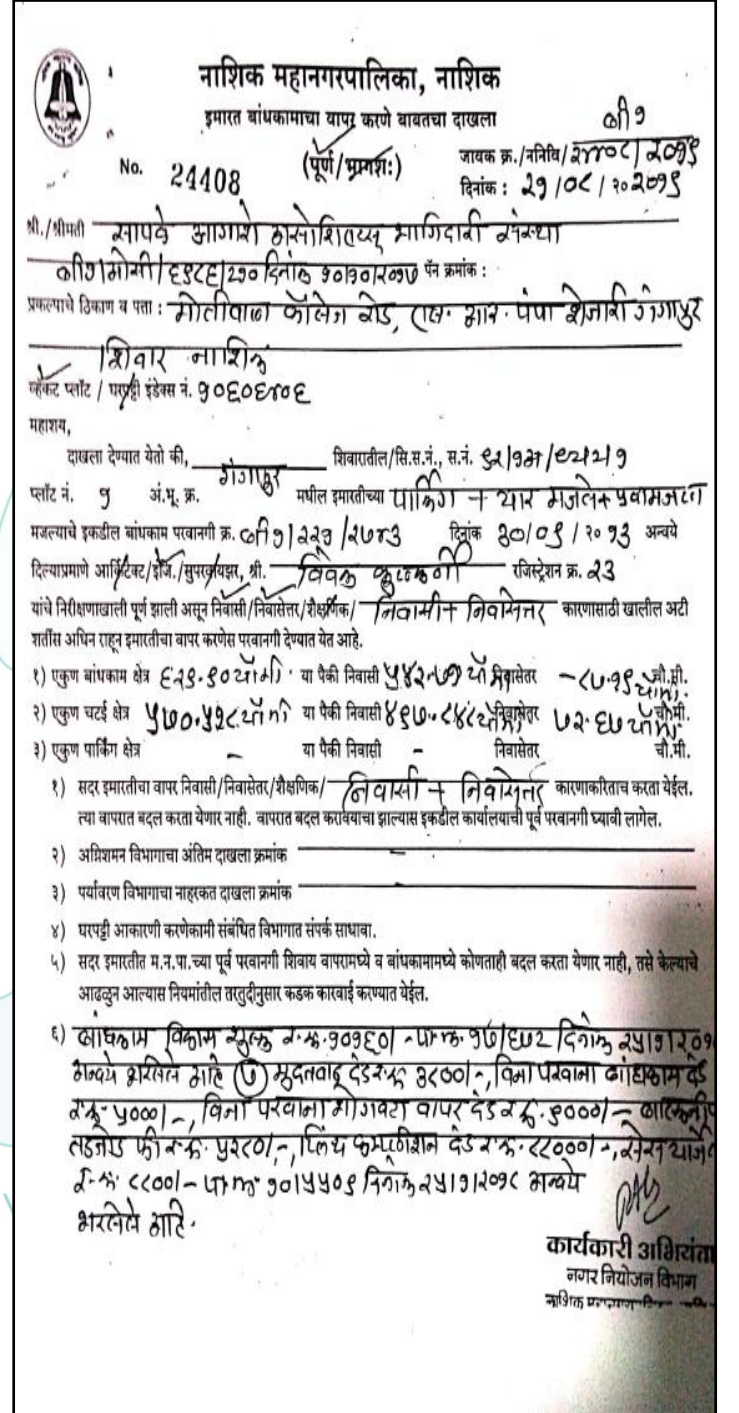 नाशिक महानगरपालिका, नाशिक
इमारत बांधकामाचा वापर करणे बाबतचा दाखला
(पूर्ण/भागशः)
No. 24408
जावक क्र./ननिवि/
दिनांक : २१/०८/२०
श्री./श्रीमती असोशिएटस् भागिदारी संस्था
दिनांक १०/१०/२०१७ पॅन क्रमांक :
प्रकल्पाचे ठिकाण व पत्ता : मोतीवाला कॉलेज रोड, एस. आर. पंपा शेजारी गंगापुर
शिवार नाशिक
व्हॅकंट प्लॉट / घरपट्टी इंडेक्स नं. १०६०६४०६
महाशय,
दाखला देण्यात येतो की, गंगापुर शिवारातील/सि.स.नं., स.नं.
प्लॉट नं. १ अं.भू. क्र. मधील इमारतीच्या पार्किंग + चार मजले+
मजल्याचे इकडील बांधकाम परवानगी क्र. दिनांक ३०/०९/२०१३ अन्वये
दिल्याप्रमाणे आर्किटेक्ट/इंजि./सुपरवायझर, श्री. विवेक कुलकर्णी रजिस्ट्रेशन क्र. २३
यांचे निरीक्षणाखाली पूर्ण झाली असून निवासी/निवासेत्तर/शैक्षणिक/ निवासी+ निवासेत्तर कारणासाठी खालील अटी
शर्तीस अधिन राहून इमारतीचा वापर करणेस परवानगी देण्यात येत आहे.
१) एकुण बांधकाम क्षेत्र ६२९.९० चौमी. या पैकी निवासी ५४२.७१ चौ मी निवासेतर -८७.१९ चौ.मी.
२) एकुण चटई क्षेत्र ५७०.५१८ चौमी या पैकी निवासी ४९७.८४८ चौमी निवासेतर ७२.६७ चौमी. चौ.मी.
३) एकुण पार्किंग क्षेत्र - या पैकी निवासी - निवासेतर चौ.मी.
१) सदर इमारतीचा वापर निवासी/निवासेतर/शैक्षणिक/ निवासी + निवासेत्तर कारणाकरिताच करता येईल.
त्या वापरात बदल करता येणार नाही. वापरात बदल करावयाचा झाल्यास इकडील कार्यालयाची पूर्व परवानगी घ्यावी लागेल.
२) अग्निशमन विभागाचा अंतिम दाखला क्रमांक -
३) पर्यावरण विभागाचा नाहरकत दाखला क्रमांक
४) घरपट्टी आकारणी करणेकामी संबंधित विभागात संपर्क साधावा.
५) सदर इमारतीत म.न.पा.च्या पूर्व परवानगी शिवाय वापरामध्ये व बांधकामामध्ये कोणताही बदल करता येणार नाही, तसे केल्याचे
आढळुन आल्यास नियमांतील तरतुदीनुसार कडक कारवाई करण्यात येईल.
६) बांधकाम विकास शुल्क र.रू. १०१६०/- पा.क्र. १७/६७२ दिनांक २५/१/२०१
अन्वये भरलेले आहे (७) मुदतवाढ दंड र.रू ३८००/-, विना परवाना बांधकाम दंड
र.रू ५०००/-, विना परवाना भोगवटा वापर दंड र.रू. ९०००/-
तडजोड फी र.रू. ५२८०/-, प्लिंथ दंड र.रू. ८८०००/-,
र.रू. ८८००/- पा.क्र. १०/५५०९ दिनांक २५/१/२०१८ अन्वये
भरलेले आहे.
कार्यकारी अभियंता
नगर नियोजन विभाग
नाशिक